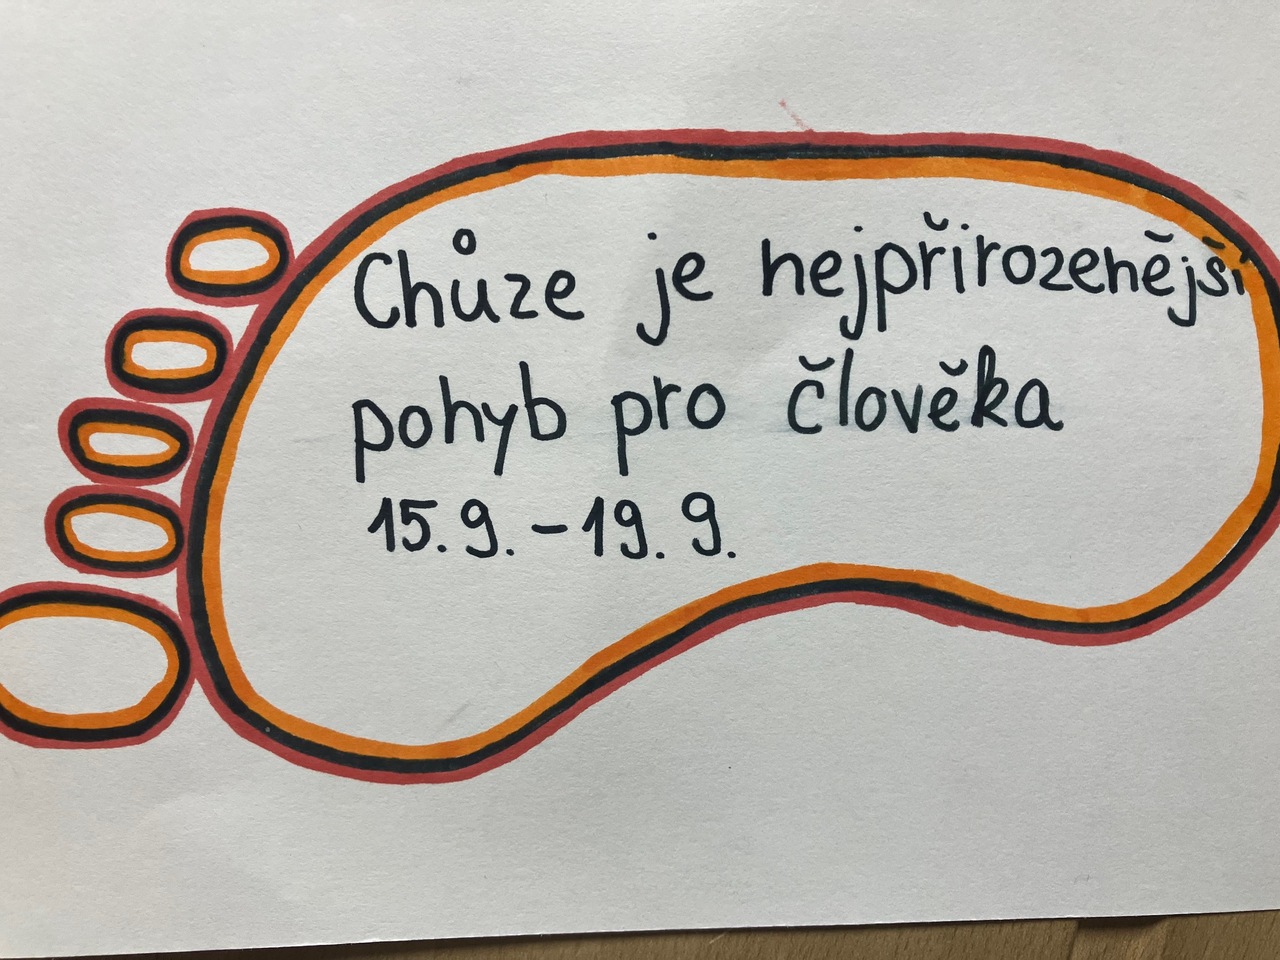 Chůze je nejpřirozenější
pohyb pro člověka
15.9.-19.9.